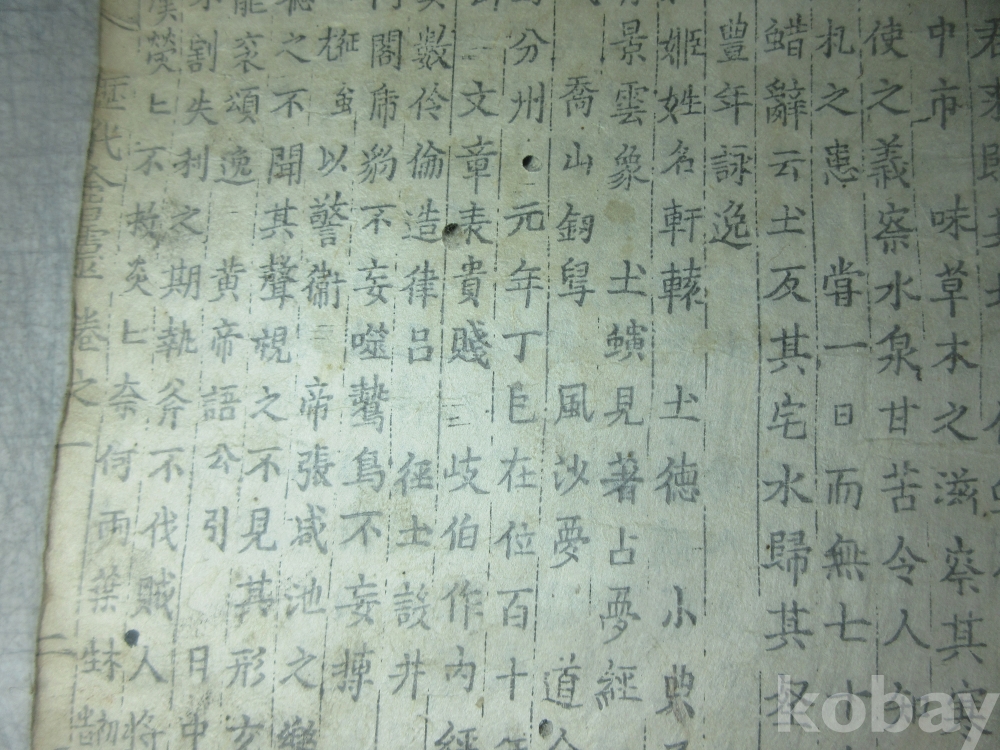 中市 味草木之滋察其寒
使之義察水泉甘苦令人知
札之患 甞一日而無七十
蜡辭云土反其宅水歸其壑
豊年詠逸
姬姓名軒轅 土德 小典
景雲象 土螾見著占夢經
喬山釰舃 風沙夢 道
分州 元年丁巳在位百十年
文章表貴賤 三 岐伯作內經
數伶倫造律呂 徑土設井
閣席豹不妄噬鷙鳥不妄搏
以警衛 帝張咸池之樂
之不聞其聲視之不見其形
頌 逸 黄帝語 公引 日中
割失利之期執斧不伐賊人將
熒匕不救炎匕奈何兩葉
歷代會靈卷之一 二
kobay